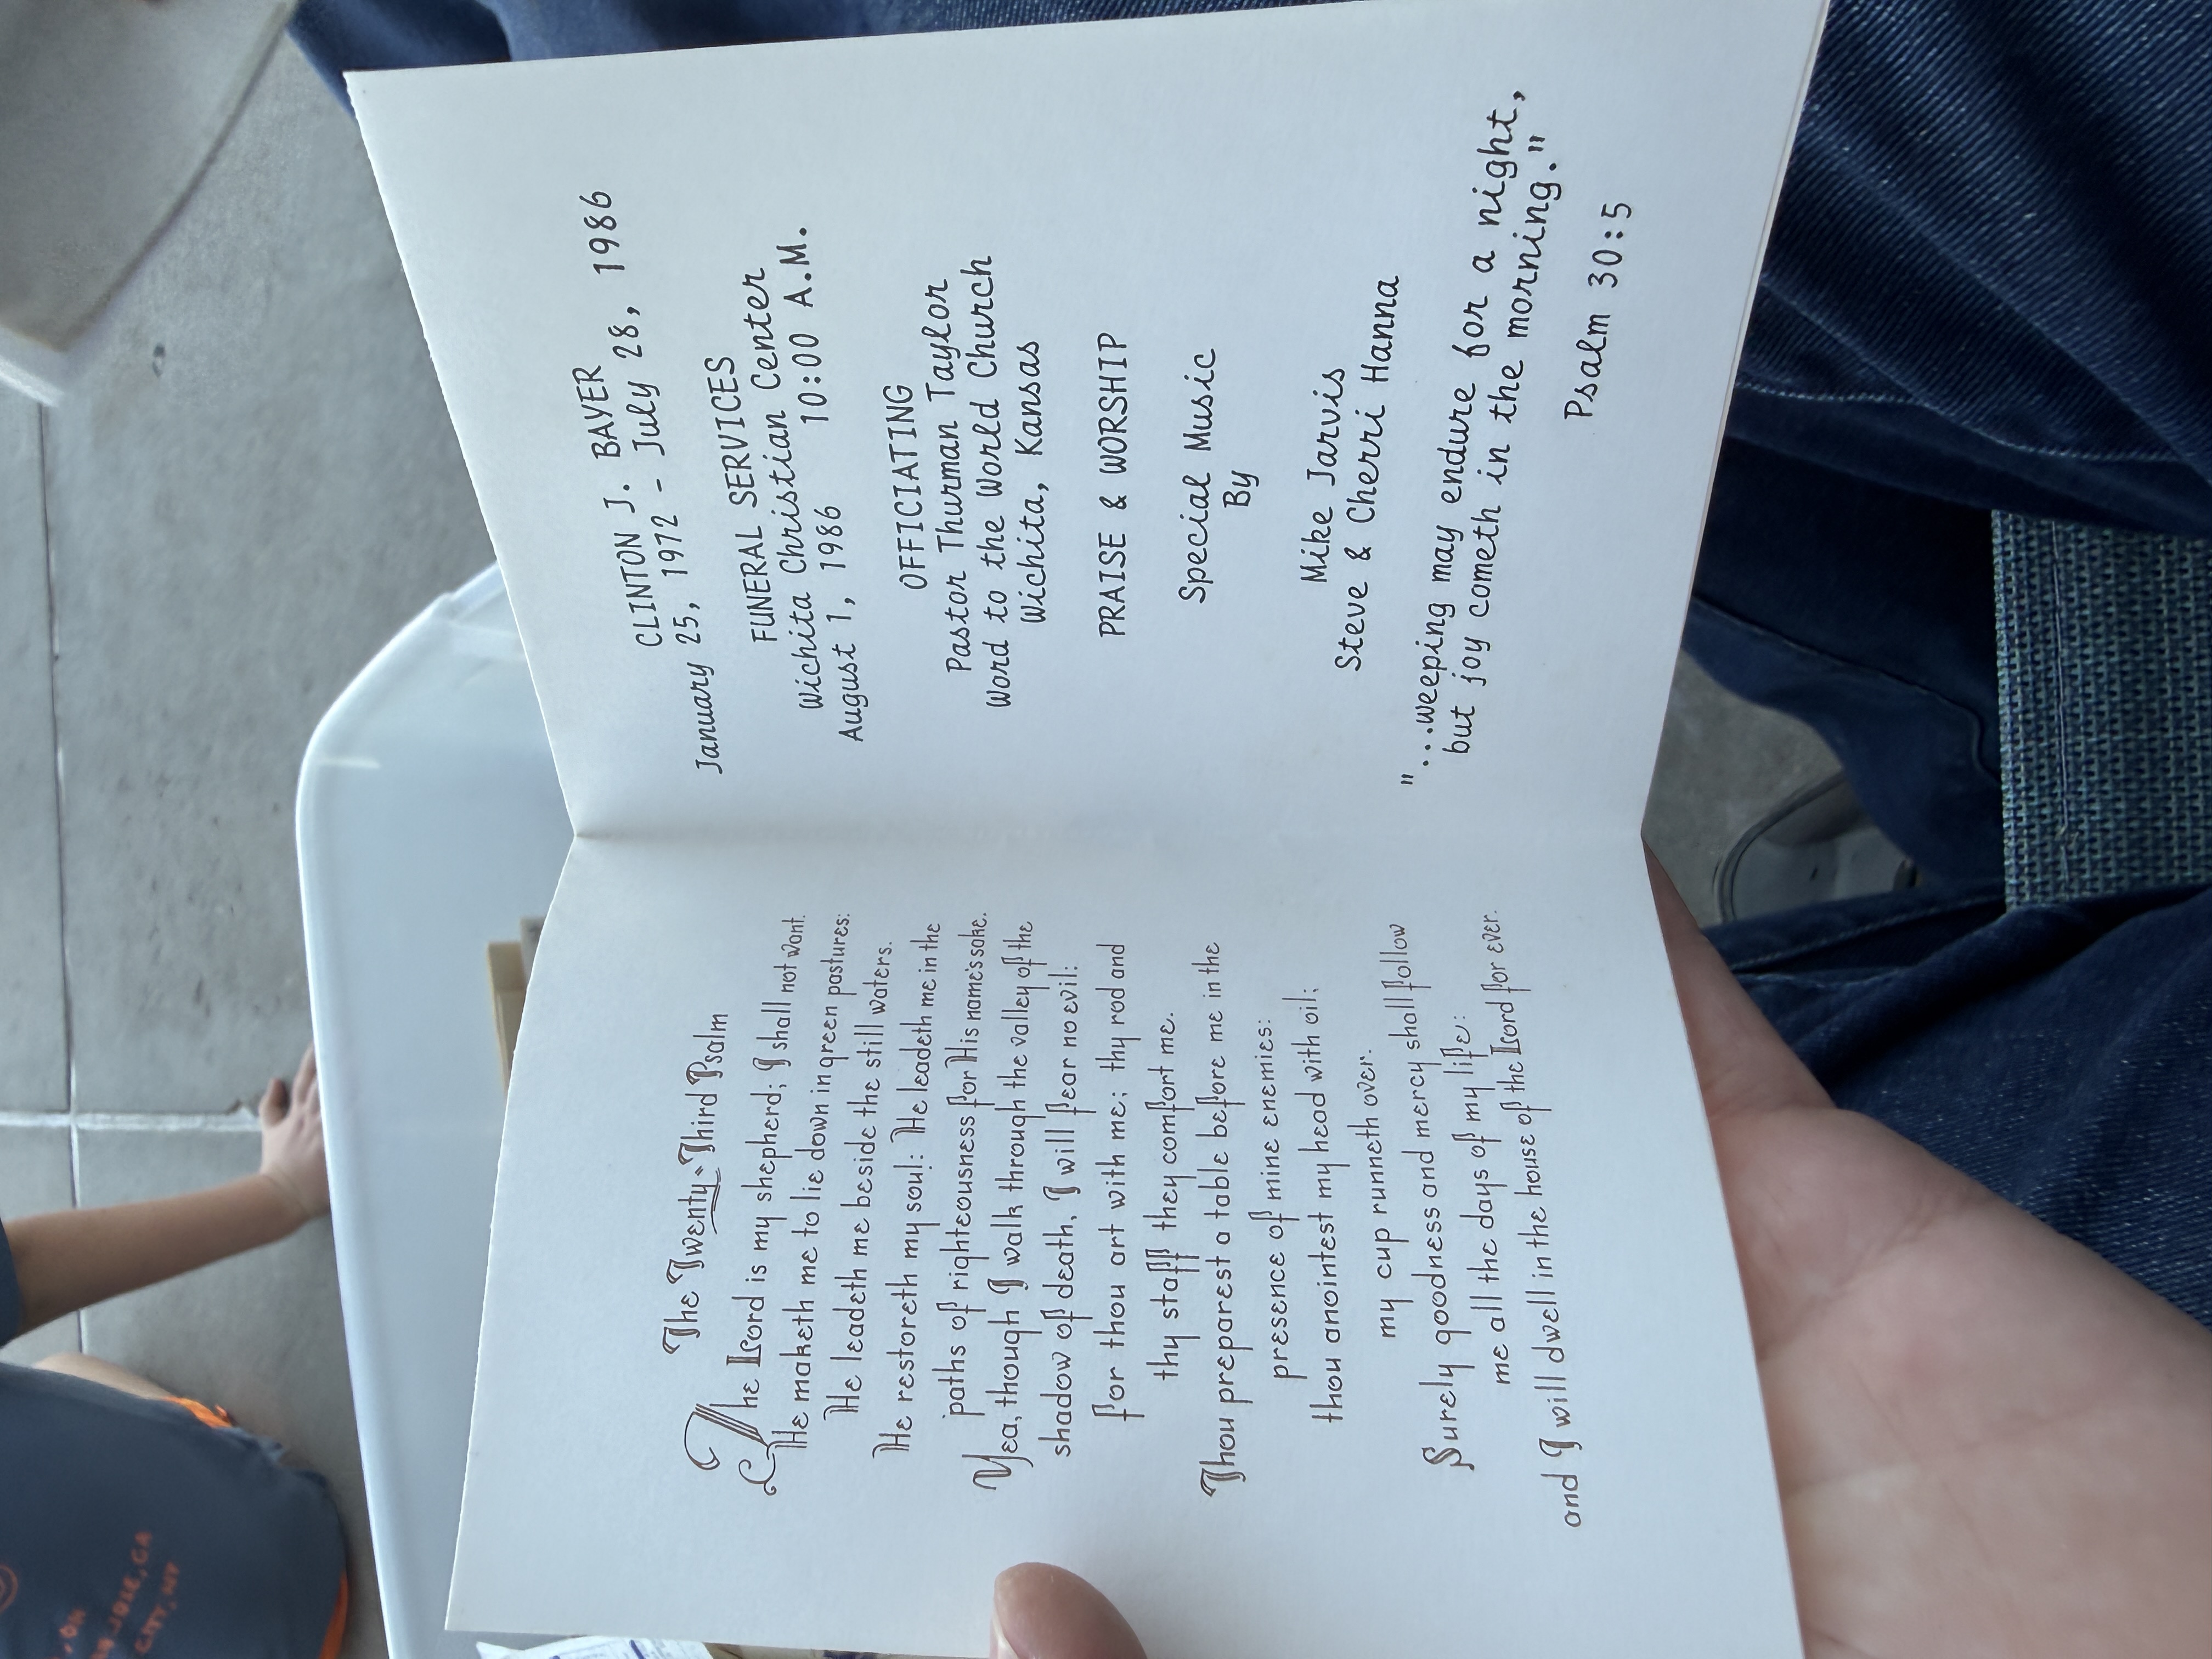 The Twenty-Third Psalm
The Lord is my shepherd; I shall not want.
He maketh me to lie down in green pastures:
He leadeth me beside the still waters.
He restoreth my soul: He leadeth me in the
paths of righteousness for His name's sake.
Yea, though I walk through the valley of the
shadow of death, I will fear no evil:
for thou art with me; thy rod and
thy staff they comfort me.
Thou preparest a table before me in the
presence of mine enemies:
thou anointest my head with oil;
my cup runneth over.
Surely goodness and mercy shall follow
me all the days of my life:
and I will dwell in the house of the Lord for ever.
CLINTON J. BAYER
January 25, 1972 - July 28, 1986
FUNERAL SERVICES
Wichita Christian Center
August 1, 1986 10:00 A.M.
OFFICIATING
Pastor Thurman Taylor
Word to the World Church
Wichita, Kansas
PRAISE & WORSHIP
Special Music
By
Mike Jarvis
Steve & Cherri Hanna
"...weeping may endure for a night,
but joy cometh in the morning."
Psalm 30:5
CITY, NY